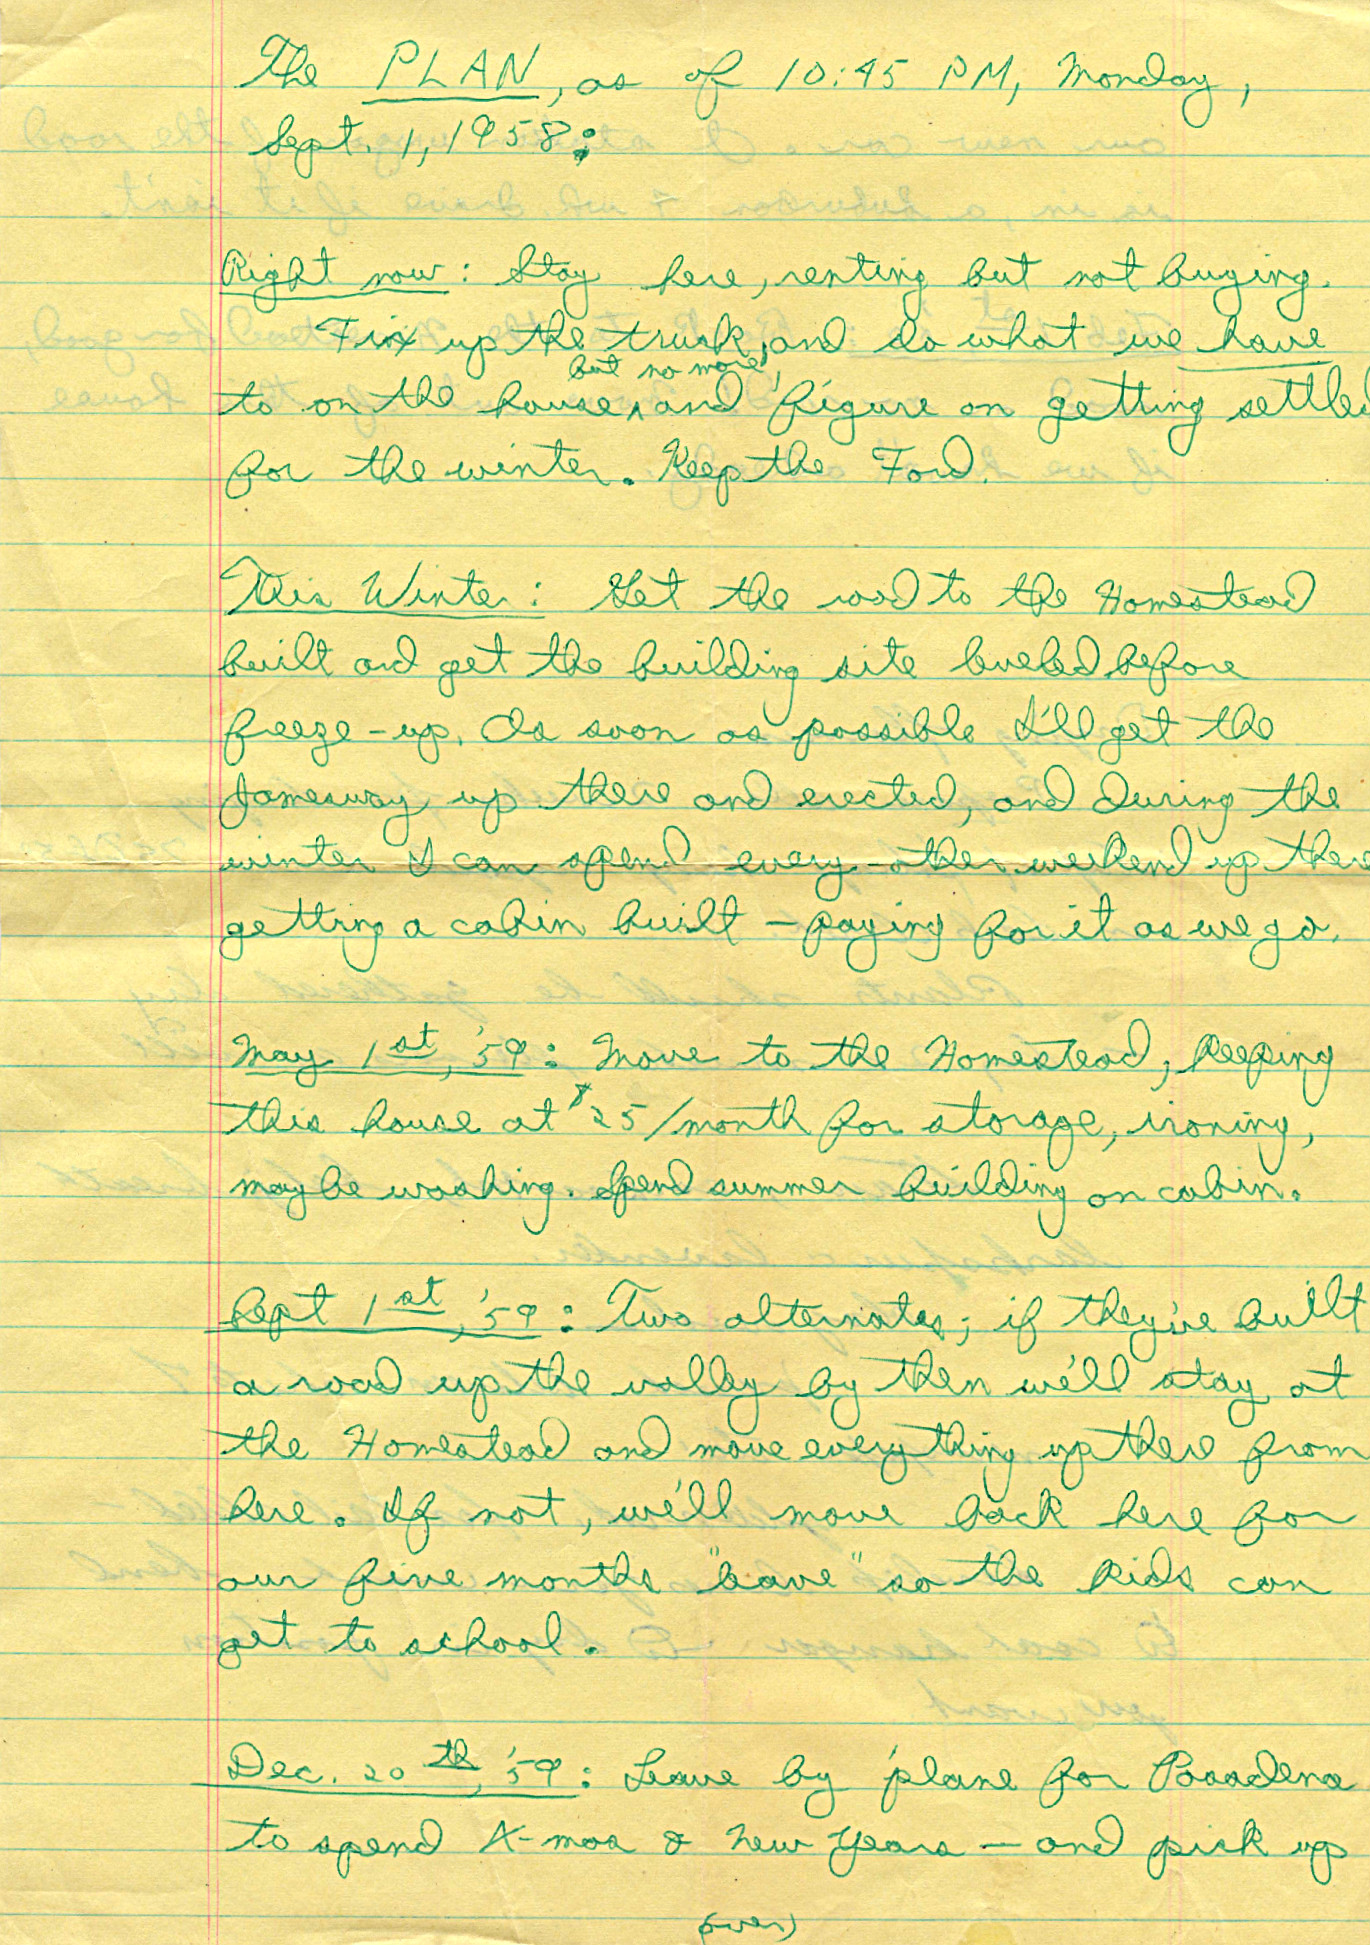 The PLAN, as of 10:45 PM, Monday,
Sept. 1, 1958:
Right now: Stay here, renting but not buying.
Fix up the truck, and do what we have
but no more,
to on the house, and figure on getting settled
for the winter. Keep the Ford.
This Winter: Get the road to the Homestead
built and get the building site leveled before
freeze-up. As soon as possible I'll get the
Jamesway up there and erected, and during the
winter I can spend every-other weekend up there
getting a cabin built – paying for it as we go.
May 1st, '59: Move to the Homestead, keeping
this house at $25/month for storage, ironing,
maybe washing. Spend summer building on cabin.
Sept 1st, '59: Two alternates; if they've built
a road up the valley by then we'll stay at
the Homestead and move everything up there from
here. If not, we'll move back here for
our five months "leave" so the kids can
get to school.
Dec. 20th, '59: Leave by plane for Pasadena
to spend X-mas & New Years – and pick up
(over)